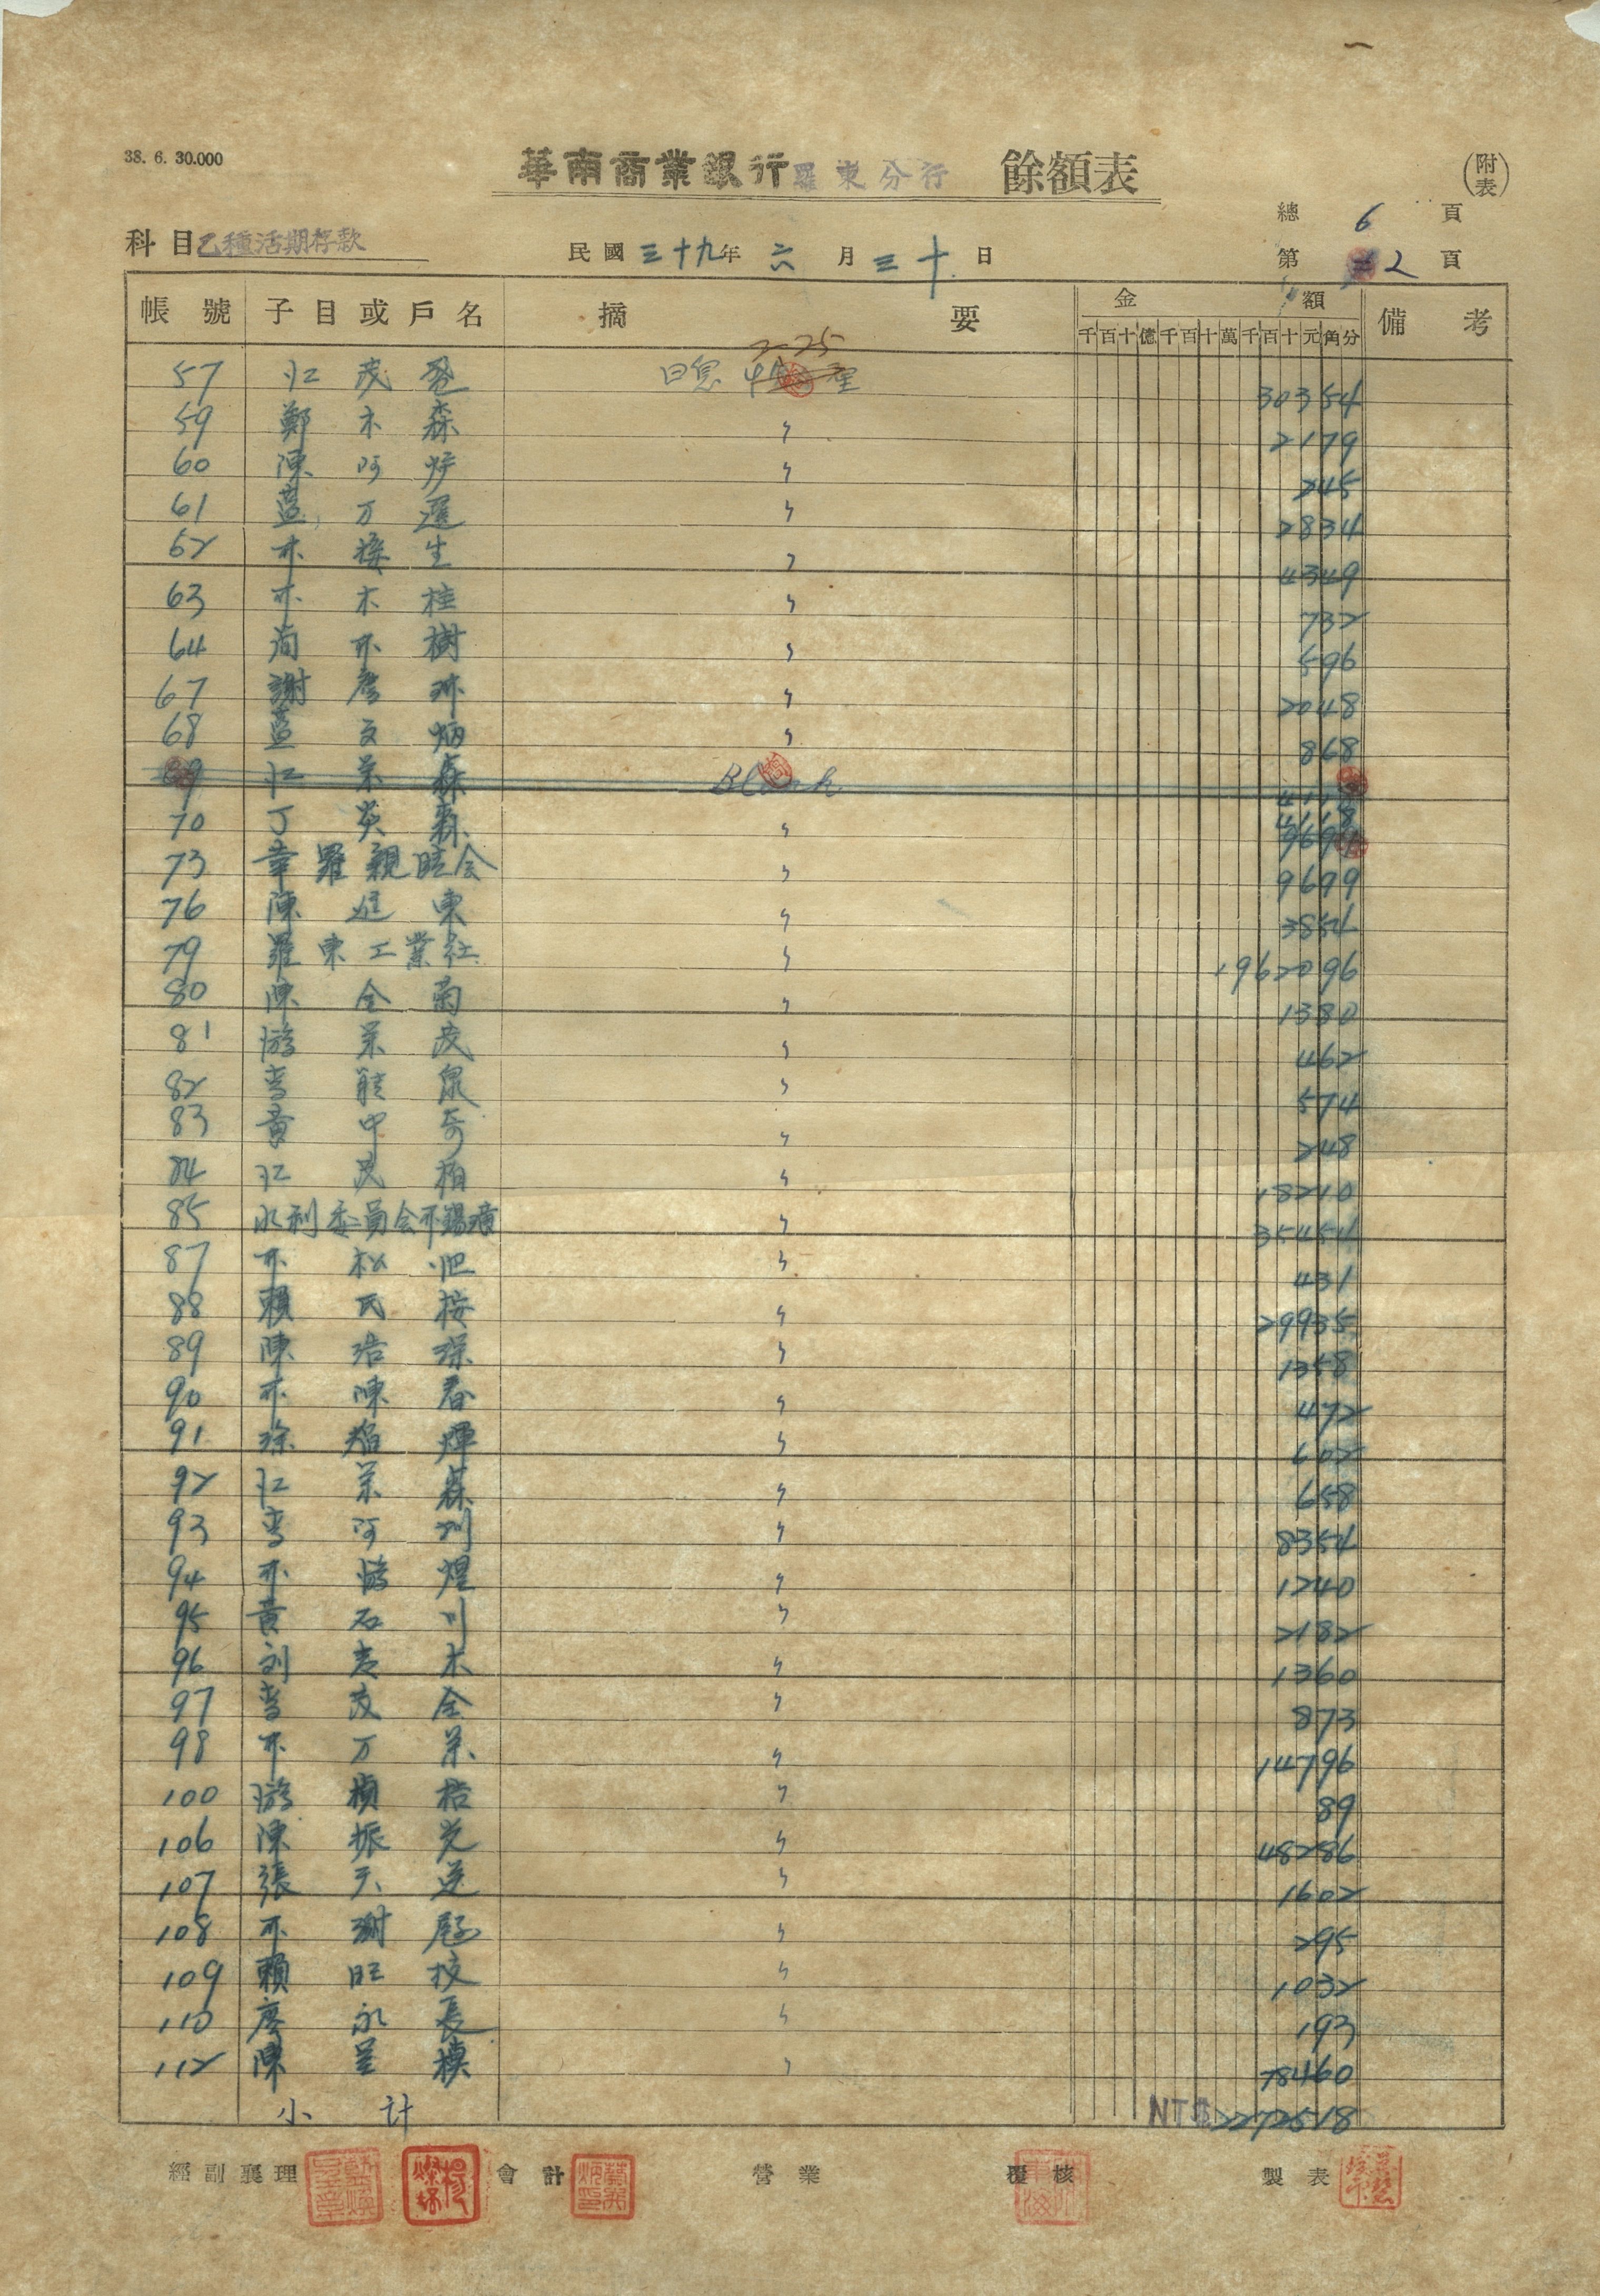 38. 6. 30.000
華南商業銀行羅東分行 餘額表
(附表)
總 6 頁
科目乙種活期存款 民國三十九年六月三十日 第 2 頁
帳號 子目或戶名 摘要 金額 備考
千百十億千百十萬千百十元角分
2-25
57 江茂 日息 30354
59 鄭木森 〃 2179
60 陳阿炉 〃 245
61 藍万選 〃 2834
62 林接生 〃 4349
63 林木桂 〃 732
64 简林樹 〃 596
67 謝 琳 〃 2048
68 藍文炳 〃 868
69 江荣森 Blank
70 丁炎森 〃
73 幸羅親睦会 〃 9699
76 陳進東 〃 3851
79 羅東工業社 〃 1962096
80 陳全菊 〃 1380
81 游荣茂 〃 462
82 李 〃 574
83 黃中奇 〃 248
84 江民柏 〃 18210
85 水利委員会林錫 〃 35454
87 林松 〃 431
88 賴氏接 〃 29935
89 陳浩深 〃 1358
90 林陳春 〃 472
91 徐焰輝 〃 602
92 江荣森 〃 658
93 李阿圳 〃 8354
94 林游煌 〃 1240
95 黃石川 〃 2182
96 刘 木 〃 1360
97 李茂全 〃 873
98 林万荣 〃 14796
100 游 〃 89
106 陳振光 〃 48286
107 張天送 〃 1602
108 林謝 〃 295
109 賴旺枝 〃 1032
110 廖永長 〃 193
112 陳呈模 〃 78460
小計 NT$2272518
經副襄理 會計 營業 覆核 製表